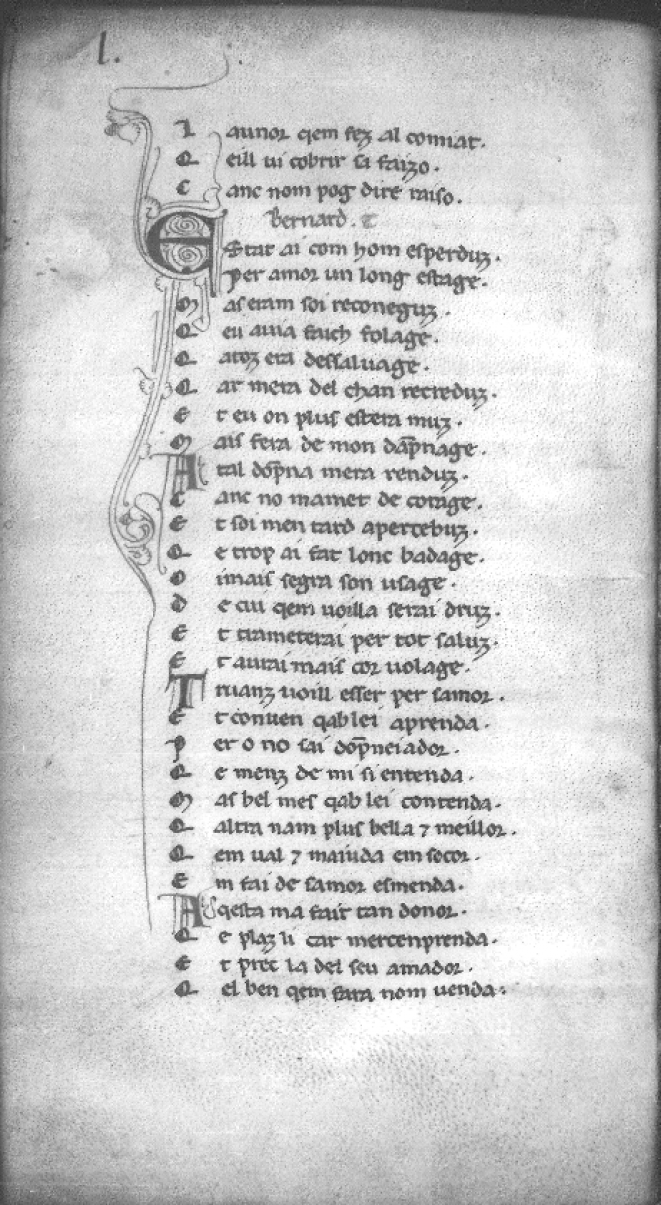 l.
L aunor qem fez al comiat.
Q eill ui cobrir sa faizo.
C anc nom pog dire raiso.
bernard. t
EStat ai com hom esperduz.
per amor un long estage.
M as eram soi reconeguz.
Q eu auia faich folage.
Q atoz era dessaluage.
Q ar mera del chan recreduz.
E t eu on plus estera muz.
M ais fera de mon dapnage.
At tal dopna mera renduz.
C anc no mamet de corage.
E t soi men tard apercebuz.
Q e trop ai fat lonc badage.
O imais segrai son usage.
D e cui qem uoilla serai druz.
E t trameterai per tot saluz.
E t aurai mais cor uolage.
Truanz uoill esser per samor.
E t conuen qab lei aprenda.
P er o no sai dopneiador.
Q e menz de mi si entenda.
M as bel mes qab lei contenda.
Q altra nam plus bella 7 meillor.
Q em ual 7 maiuda em socor.
E m fai de samor esmenda.
ASqesta ma fait tan donor.
Q e plaz li car mercenprenda.
E t prec la del seu amador.
Q el ben qem fara nom uenda.